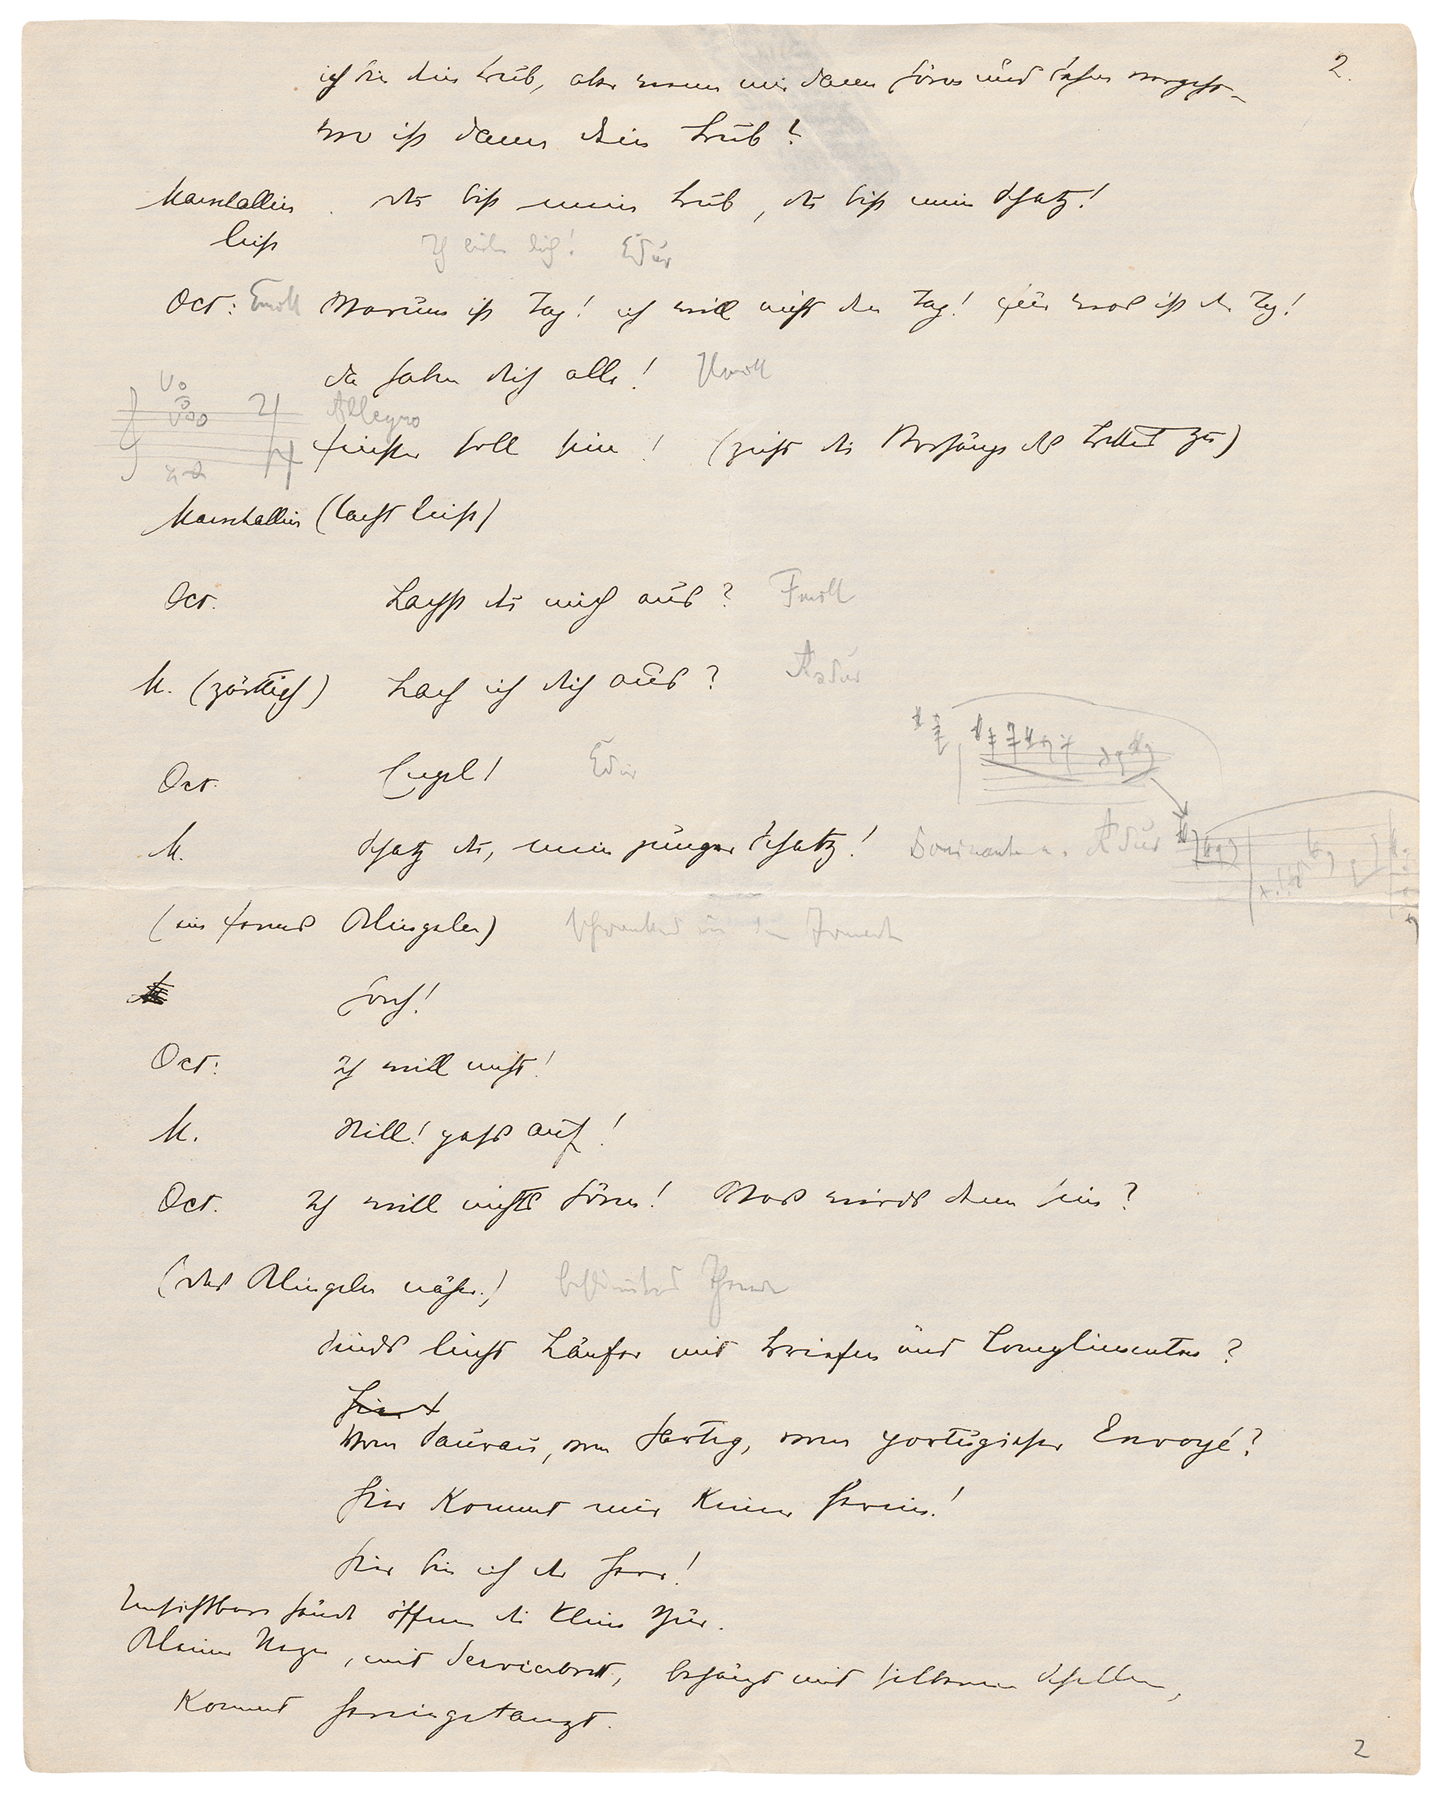 2.
ich bin dein Bub, aber wenn mir dann Hören und Sehen vergeht –
wo ist dann dein Bub?
Marschallin . du bist mein Bub, du bist mein Schatz!
leise
Ich liebe dich! Edur
Oct: Emoll Warum ist Tag! ich will nicht den Tag! für was ist der Tag!
da haben dich alle! Hmoll
Allegro
finster soll sein! (zieht die Vorhänge des Bettes zu)
Marschallin (lacht leise)
Oct. Lachst du mich aus? Fmoll
M. (zärtlich) Lach ich dich aus? Asdur
Oct. Engel! Edur
M. Schatz du, mein junger Schatz! Dominante v. Adur
(ein feines Klingeln)
Horch!
Oct: Ich will nicht!
M. Still! pass auf!
Oct. Ich will nichts hören! Was wirds denn sein?
(das Klingeln näher.)
Sinds leicht Läufer mit Briefen und Complimenten?
Hier
Vom Saurau, vom Hartig, vom portugieser Envoyé?
Hier kommt mir keiner herein!
Hier bin ich der Herr!
Unsichtbare Hände öffnen die kleine Thür.
Kleiner Neger, mit Servierbrett, behängt mit silbernen Schellen,
kommt hereingetanzt.
2